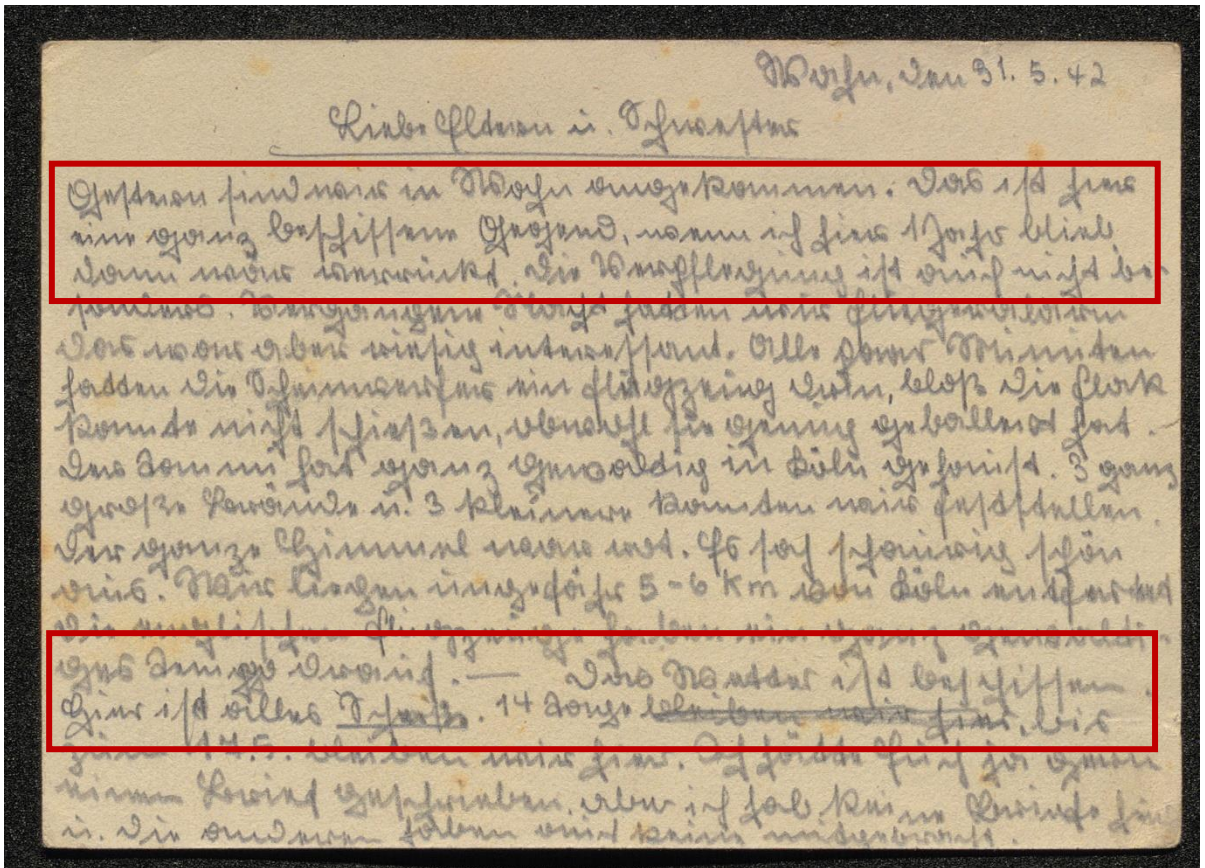 Wahn, den 31. 5. 42
Liebe Eltern u. Schwester
Gestern sind wir in Wahn angekommen. Das ist hier
eine ganz beschissene Gegend, wenn ich hier 1 Jahr blieb,
dann wär verrückt. Die Verpflegung ist auch nicht be-
sonders. Vergangene Nacht hatten wir Fliegeralarm
das war aber riesig interessant. Alle paar Minuten
hatten die Scheinwerfer ein Flugzeug drin, bloß die Flak
konnte nicht schießen, obwohl sie genug geballert hat.
Der Tommi hat ganz gewaltig in Köln gehaust. 3 ganz
große Brände u. 3 kleinere konnten wir feststellen.
Der ganze Himmel war rot. Es sah schaurig schön
aus. Wir liegen ungefähr 5-6 km von Köln entfernt
die englischen Flugzeuge haben ein ganz gewalti-
ges Tempo drauf. — Das Wetter ist beschissen.
Hier ist alles Scheiße. 14 Tage bleiben wir hier, bis
zum 17.5. bleiben wir hier. Ich hätte Euch ja gern
einen Brief geschrieben, aber ich hab keine Briefe hier
u. die anderen haben auch keine mitgebracht.